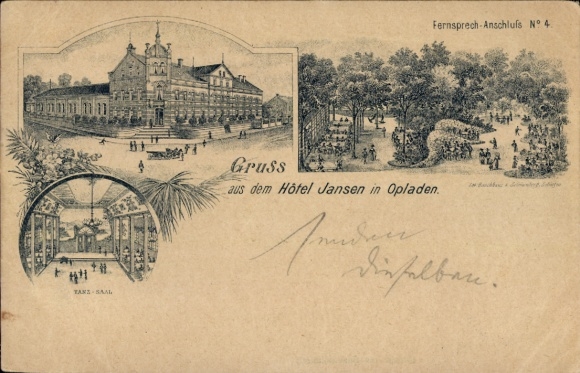 Fernsprech-Anschluſs Nº 4.
Gruss
aus dem Hôtel Jansen in Opladen.
TANZ-SAAL
senden
dieselben.